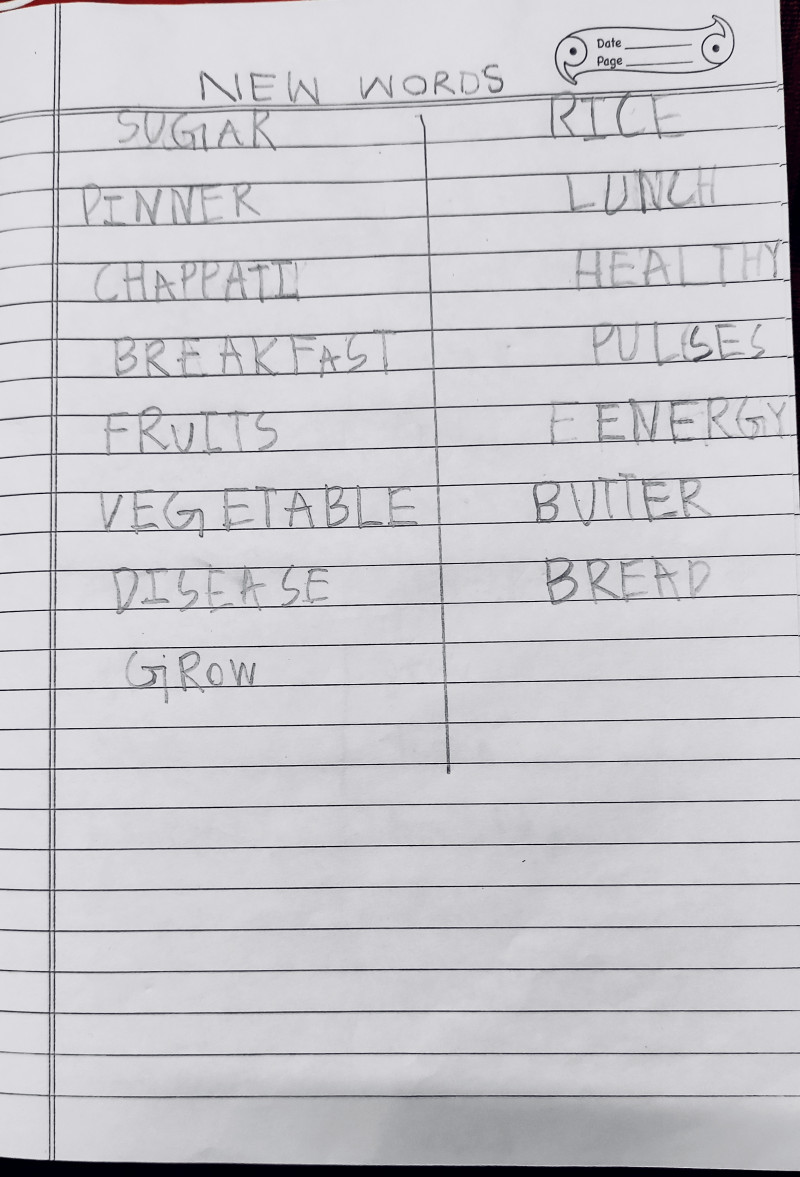 Date
Page
NEW WORDS
SUGAR
RICE
PINNER
LUNCH
CHAPPATI
HEALTHY
BREAKFAST
PULSES
FRUITS
E ENERGY
VEGETABLE
BUTTER
DISEASE
BREAD
GROW